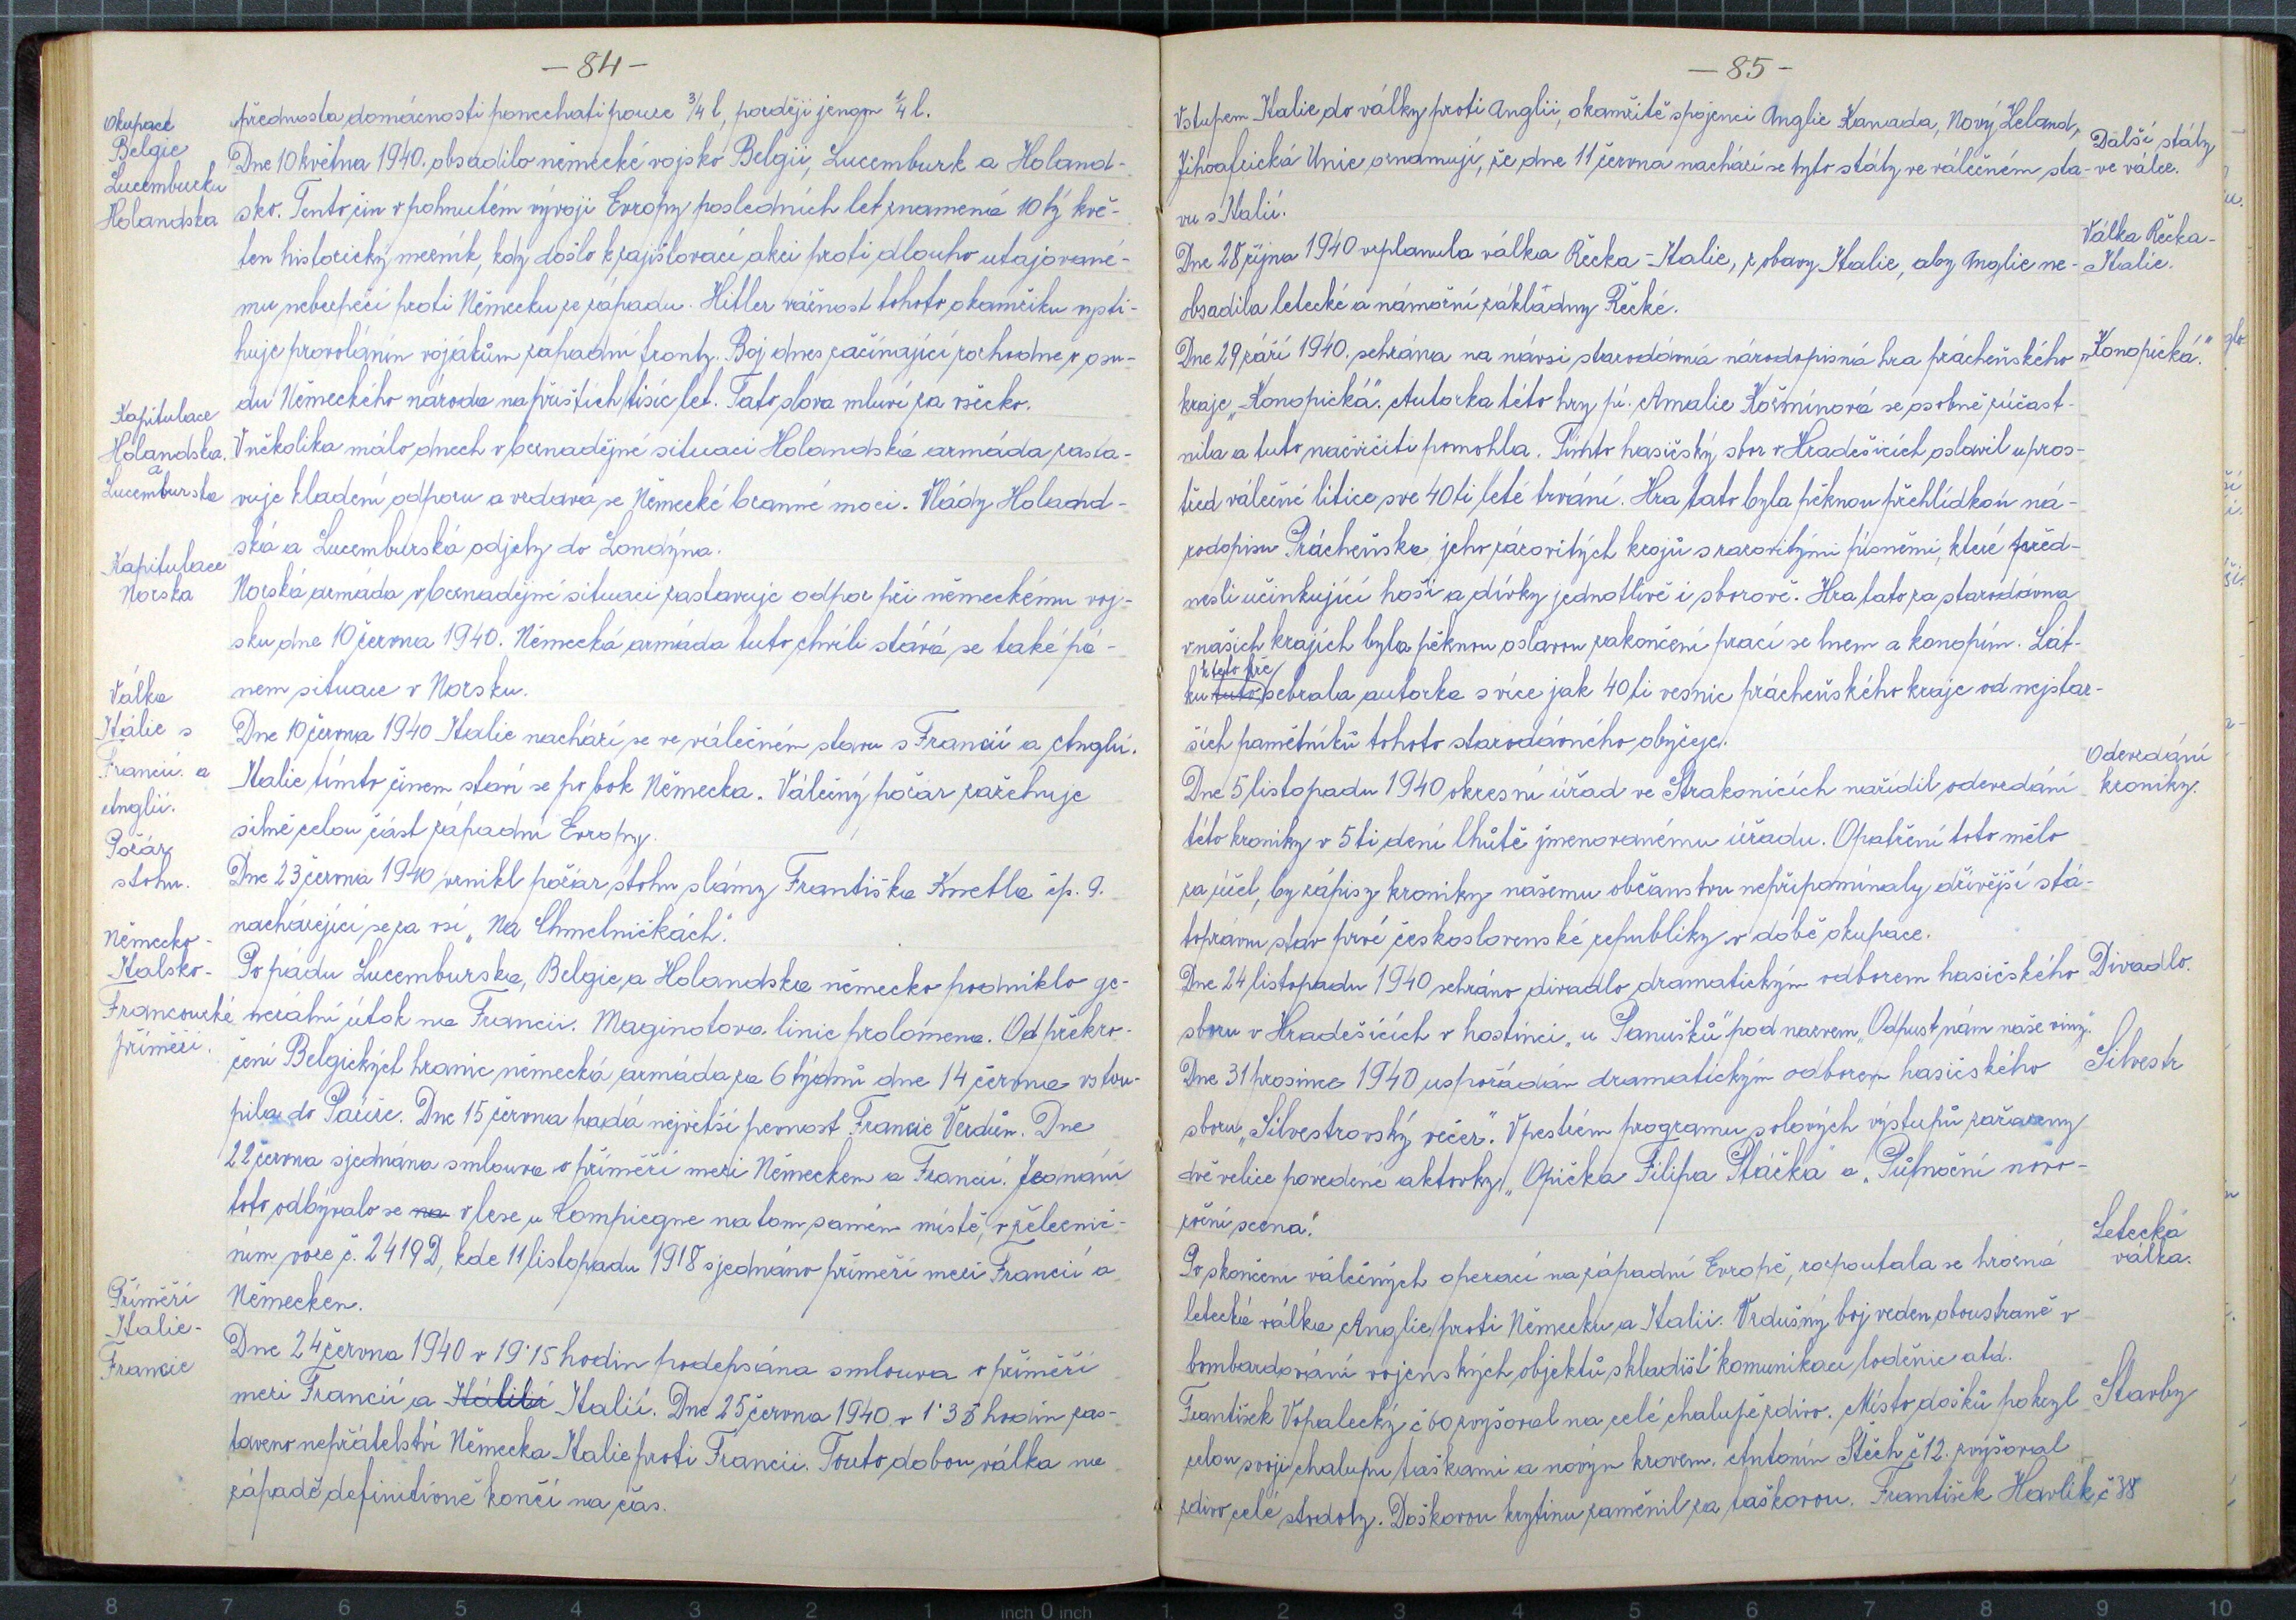 —84—
Okupace
Belgie
Lucemburku
Holandska
přednosta domácnosti ponechati pouze 3/4 l, později jenom 1/4 l.
Dne 10 května 1940. obsadilo německé vojsko Belgii, Lucemburk a Holand-
sko. Tento čin v pohnutém vývoji Evropy posledních let znamená 10tý kvě-
ten historický mezník, kdy došlo k zajišťovací akci proti dlouho utajované-
mu nebezpečí proti Německu ze západu. Hitler vážnost tohoto okamžiku vysti-
huje provoláním vojákům západní fronty. Boj dnes začínající rozhodne o osu-
du Německého národa na příštích tisíc let. Tato slova mluví za všecko.
Kapitulace
Holandska
a
Lucemburska
V několika málo dnech v beznadějné situaci Holandská armáda zasta-
vuje kladení odporu a vzdává se Německé branné moci. Vlády Holand-
ská a Lucemburská odjely do Londýna.
Kapitulace
Norska
Norská armáda v beznadějné situaci zastavuje odpor při německému voj-
sku dne 10 června 1940. Německá armáda tuto chvíli stává se také pá-
nem situace v Norsku.
Válka
Itálie s
Francií a
Anglií.
Dne 10 června 1940 Italie nachází se ve válečném stavu s Francií a Anglií.
Italie tímto činem staví se po bok Německa. Válečný požár zažehuje
silně celou část západní Evropy.
Požár
stohu.
Dne 23 června 1940 vznikl požár stohu slámy Františka Kmetla čp. 9.
nacházející se za vsí „Na Chmelničkách."
Německo-
Italsko-
Francouzské
příměří.
Po pádu Lucemburska, Belgie a Holandska německo podniklo ge-
nerální útok na Francii. Maginotova linie prolomena. Od překro-
čení Belgických hranic německá armáda za 6 týdnů dne 14 června vstou-
pila do Paříže. Dne 15 června padá největší pevnost Francie Verdůn. Dne
22 června sjednána smlouva o příměří mezi Německem a Francií. Jednání
toto odbývalo se na v lese u Compiegne na tom samém místě, v železnič-
ním voze č. 2419 D, kde 11 listopadu 1918 sjednáno příměří mezi Francií a
Německem.
Příměří
Italie-
Francie
Dne 24 června 1940 v 19·15 hodin podepsána smlouva o příměří
mezi Francií a Itálilií Italií. Dne 25 června 1940 v 1·35 hodin zas-
taveno nepřátelství Německa-Italie proti Francii. Touto dobou válka na
západě definitivně končí na čas.
—85—
Vstupem Italie do války proti Anglii, okamžitě spojenci Anglie Kanada, Nový Zeland,
Jihoafrická Unie oznamují, že dne 11 června nachází se tyto státy ve válečném sta-
vu s Italií.
Další státy
ve válce.
Dne 28 října 1940 vzplanula válka Řecka-Italie, z obavy Italie, aby Anglie ne-
obsadila letecké a námořní základny Řecké.
Válka Řecka-
Italie.
Dne 29 září 1940. sehrána na návsi starodávná národopisná hra prácheňského
kraje „Konopická". Autorka této hry pí. Amalie Kožmínová se osobně zúčast-
nila a tuto nacvičiti pomohla. Tímto hasičský sbor v Hradešicích oslavil upros-
třed válečné litice své 40ti leté trvání. Hra tato byla pěknou přehlídkou ná-
rodopisu Prácheňska, jeho rázovitých krojů s rázovitými písněmi, které před-
nesli učinkující hoši a dívky jednotlivě i sborově. Hra tato za starodávna
v našich krajích byla pěknou oslavou zakončení prací se lnem a konopím. Lát-
k této hře
ku tuto sebrala autorka s více jak 40ti vesnic prácheňského kraje od nejstar-
ších pamětníků tohoto starodávného obyčeje.
„Konopická."
Dne 5 listopadu 1940 okresní úřad ve Strakonicích nařídil odevzdání
této kroniky v 5ti dení lhůtě jmenovanému úřadu. Opatření toto mělo
za účel, by zápisy kroniky našemu občanstvu nepřipomínaly dřívější stá-
toprávní stav prvé československé republiky v době okupace.
Odevzdání
kroniky.
Dne 24 listopadu 1940 sehráno divadlo dramatickým odborem hasičského
sboru v Hradešicích v hostinci „u Panušků" pod nazvem „Odpust nám naše viny".
Divadlo.
Dne 31 prosince 1940 uspořádán dramatickým odborem hasičského
sboru „Silvestrovský večer". V pestrém programu solových výstupů zařazeny
dvě velice povedené aktovky „Opička Filipa Ptáčka" a „Půlnoční novo-
roční scena".
Silvestr
Po skončení válečných operací na západní Evropě, rozpoutala se hrozná
letecká válka Anglie proti Německu a Italii. Vzdušný boj veden oboustraně v
bombardování vojenských objektů skladišť komunikací loděnic atd.
Letecká
válka.
František Vopalecký č 60 zvyšoval na celé chalupě zdivo. Místo došků pokryl
celou svoji chalupu taškami a novým krovem. Antonín Štěch č 12. zvyšoval
zdivo celé stodoly. Doškovou krytinu zaměnil za taškovou. František Havlík, č 38
Stavby
8 7 6 5 4 3 2 1 inch 0 inch 1 2 3 4 5 6 7 8 9 10